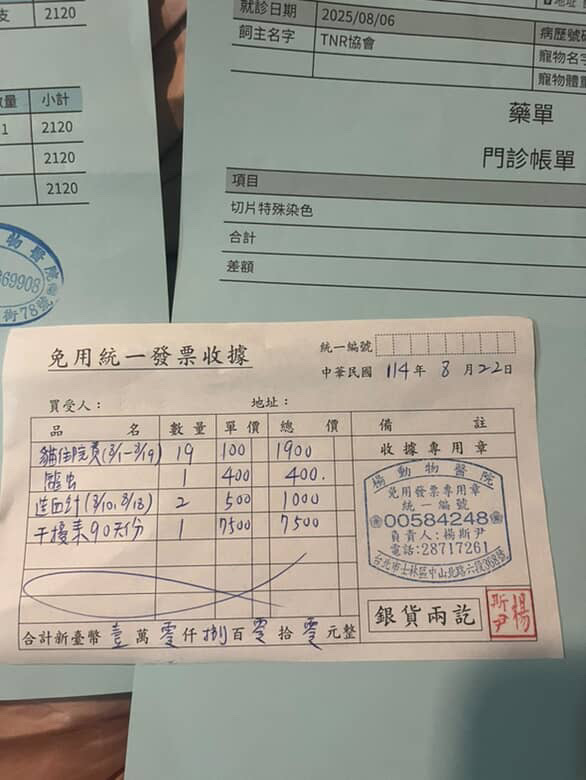 支 2120
數量 小計
1 2120
2120
2120
物醫院
369908
街78號
就診日期 2025/08/06
飼主名字 TNR協會 病歷號碼
寵物名字
寵物體重
藥單
門診帳單
項目
切片特殊染色
合計
差額
免用統一發票收據
統一編號
中華民國 114年 8月22日
買受人： 地址：
品名 數量 單價 總價 備註
貓住院費(8/1-8/19) 19 100 1900
驅虫 1 400 400.
造血針(8/10, 8/13) 2 500 1000
干擾素90天份 1 7500 7500
收據專用章
楊動物醫院
免用發票專用章
統一編號
00584248
負責人：楊斯尹
電話:28717261
台北市士林區中山北路六段368號
合計新臺幣 壹萬零仟捌百零拾零元整
銀貨兩訖
楊斯尹